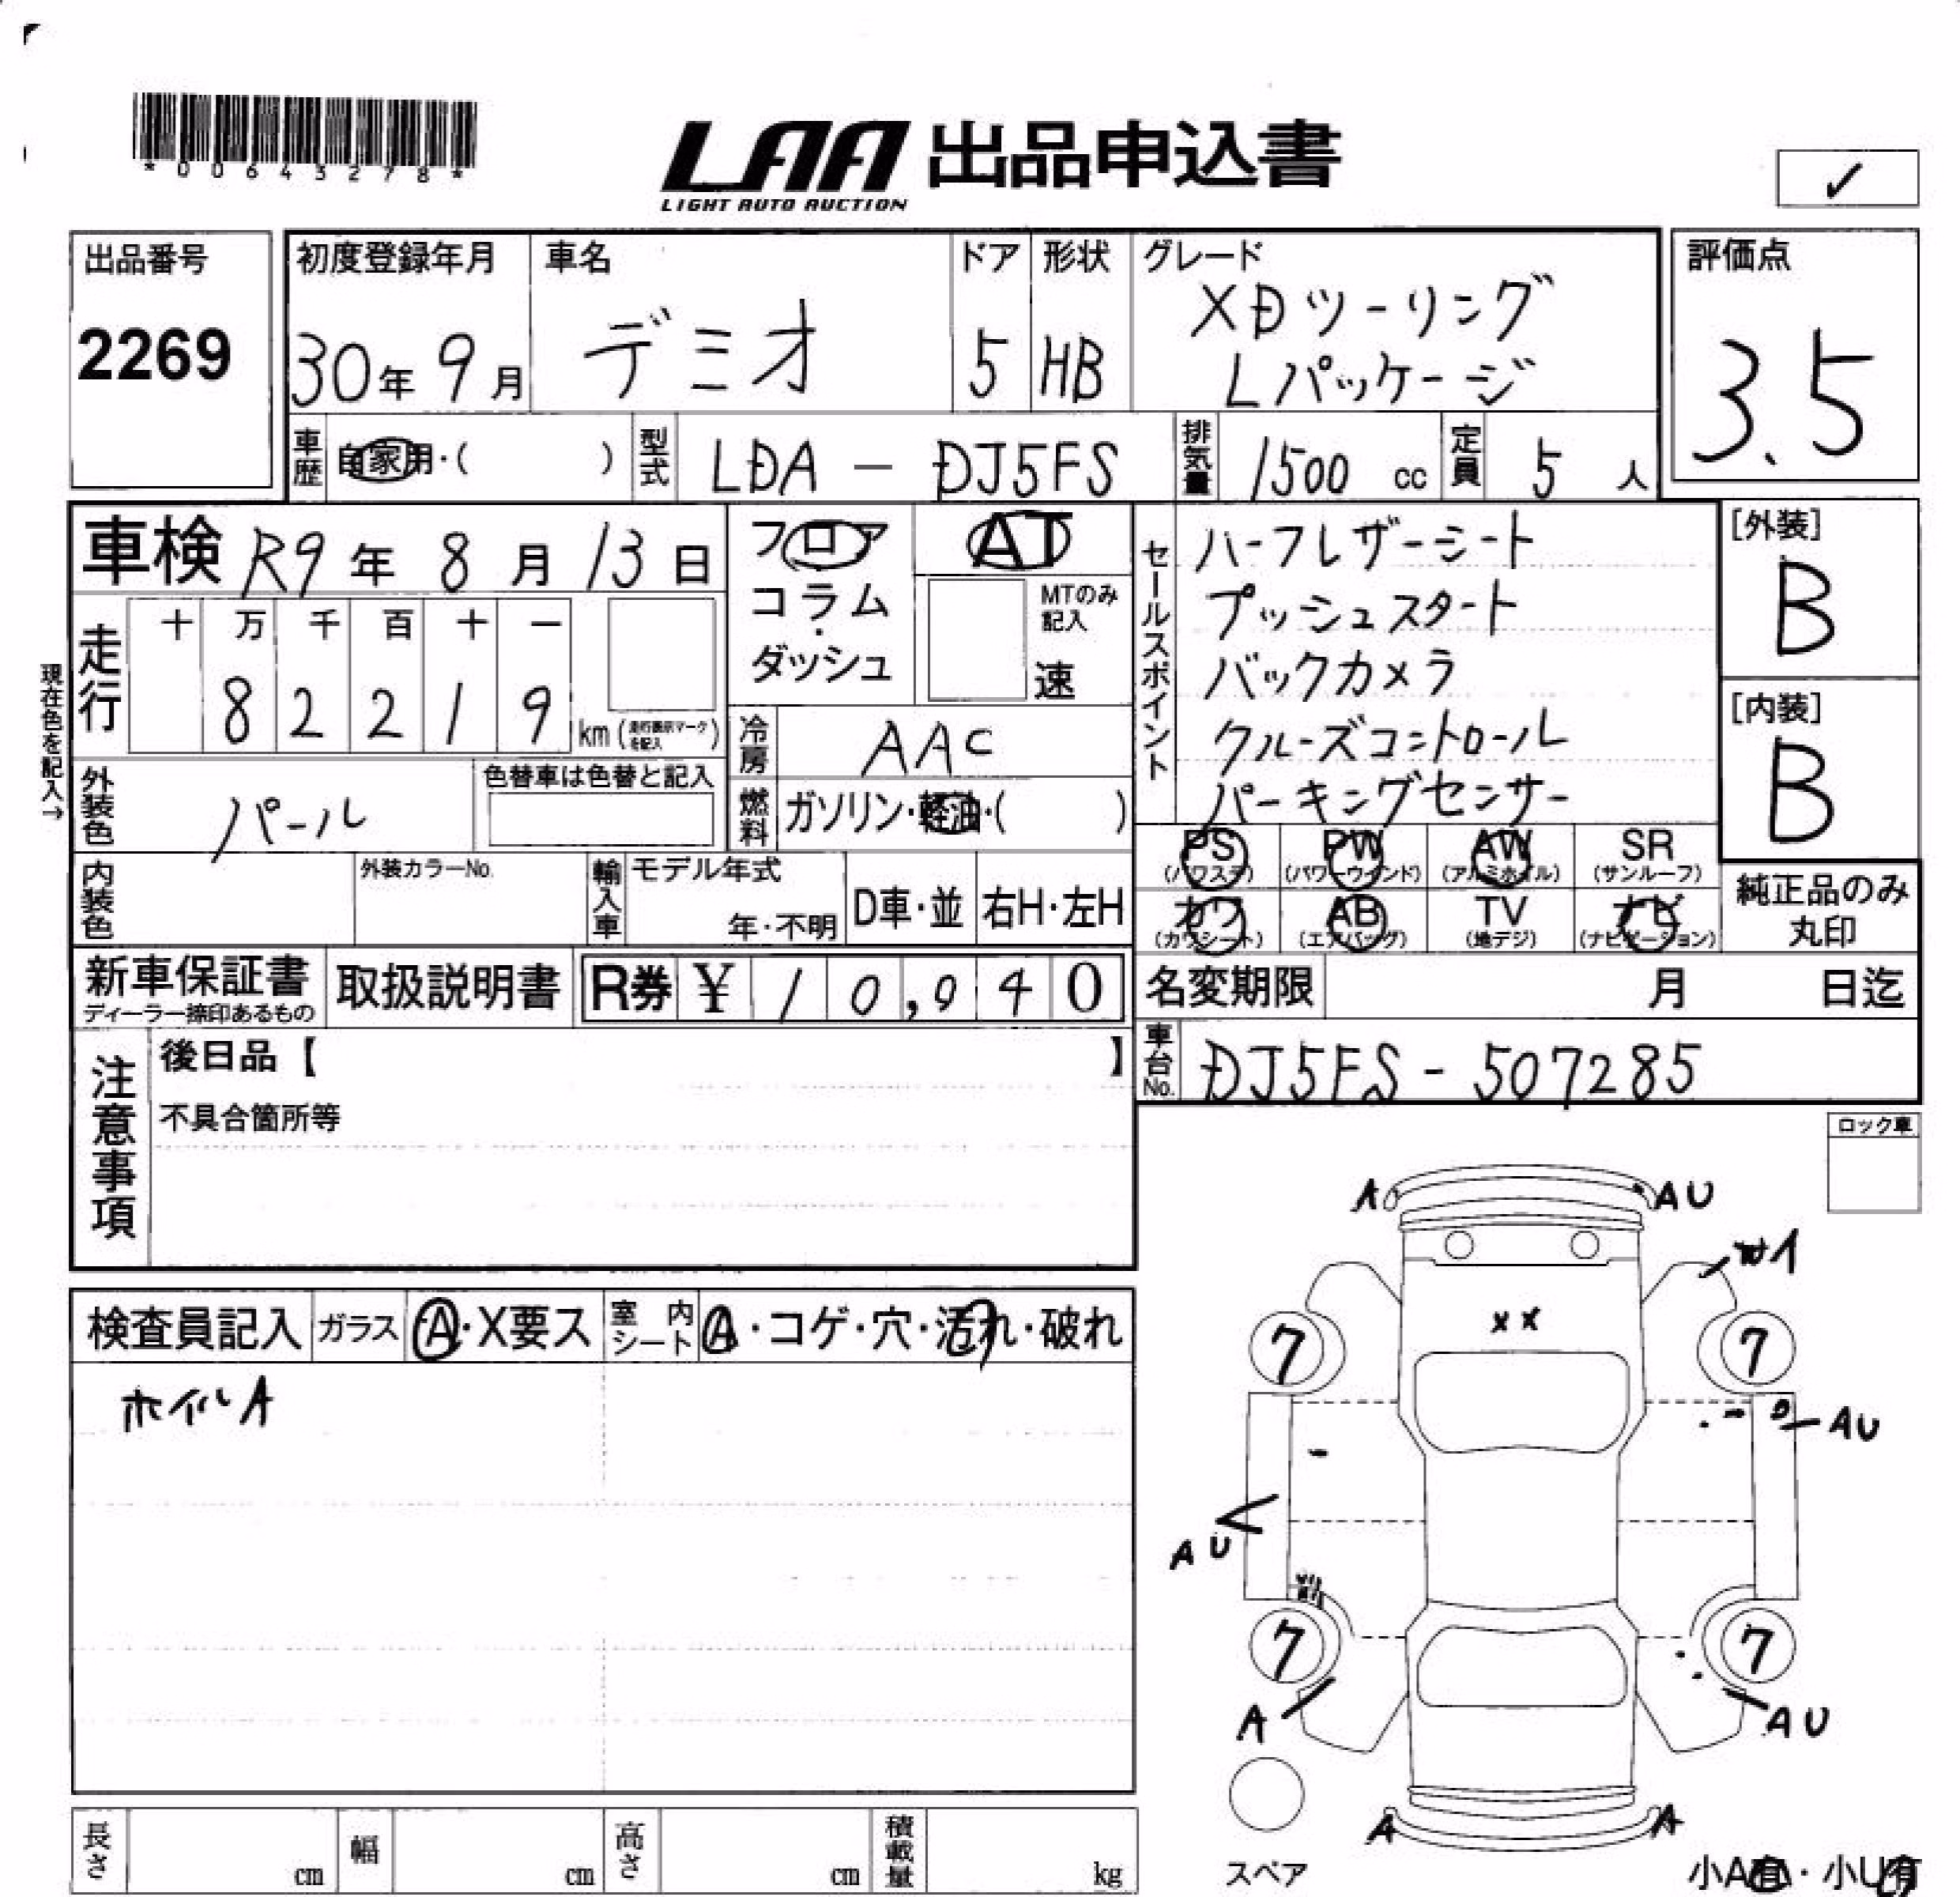 *00643278*
LAA 出品申込書
LIGHT AUTO AUCTION
✓
出品番号
2269
初度登録年月
30年 9月
車名
デミオ
ドア
5
形状
HB
グレード
XDツーリング
Lパッケージ
評価点
3.5
車歴
自家用・( )
型式
LDA - DJ5FS
排気量
1500 cc
定員
5 人
車検 R9年 8月 13日
フロア
コラム
・
ダッシュ
AT
MTのみ
記入
速
セールスポイント
ハーフレザーシート
プッシュスタート
バックカメラ
クルーズコントロール
パーキングセンサー
[外装]
B
[内装]
B
現在色を記入→
走行
十 万 千 百 十 一
8 2 2 1 9
km
冷房
AAC
外装色
パール
色替車は色替と記入
燃料
ガソリン・軽油・( )
PS
(パワステ)
PW
(パワーウインド)
AW
(アルミホイル)
SR
(サンルーフ)
カワ
(カワシート)
AB
(エアバッグ)
TV
(地デジ)
ナビ
(ナビゲーション)
純正品のみ
丸印
内装色
外装カラーNo.
輸入車
モデル年式
年・不明
D車・並
右H・左H
新車保証書
ディーラー捺印あるもの
取扱説明書
R券 ¥ 10,940
名変期限
月 日迄
車台No.
DJ5FS - 507285
注意事項
後日品【 】
不具合箇所等
ロック車
検査員記入
ガラス
A・X要ス
室内
シート
A・コゲ・穴・汚れ・破れ
ホイルA
A
AU
W1
XX
7
7
AU
AU
7
7
A
AU
A
A
スペア
小A有・小U有
長さ
cm
幅
cm
高さ
cm
積載量
kg